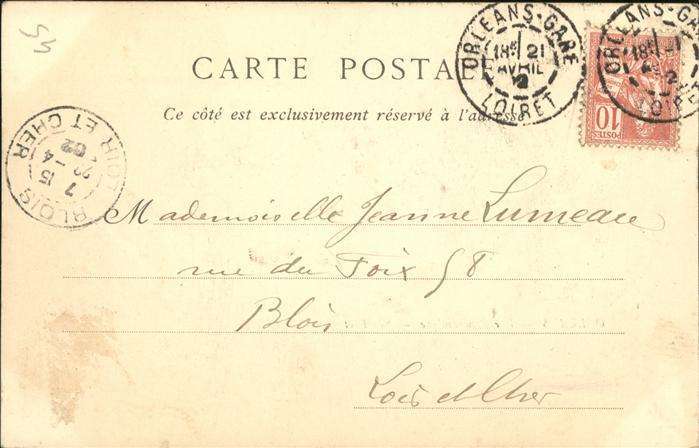 54
CARTE POSTALE
Ce côté est exclusivement réservé à l'adresse
ORLEANS-GARE
18 21
AVRIL
2
LOIRET
ORLEANS-GARE
18 21
2
LOIRET
10
POSTES
BLOIS
7 15
22-4
02
LOIR ET CHER
Mademoiselle Jeanne Lumeau
rue du Foix 58
Blois
Loir et Cher